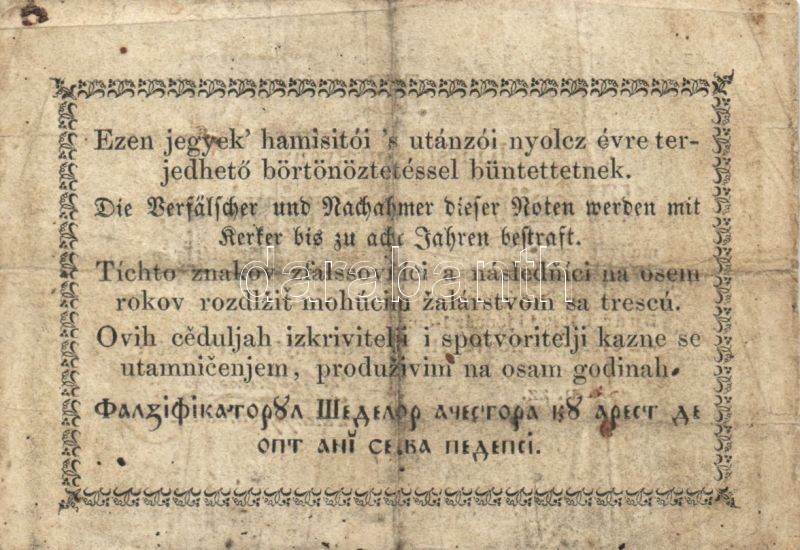 Ezen jegyek' hamisitói 's utánzói nyolcz évre ter-
jedhető börtönöztetéssel büntettetnek.
Die Verfälscher und Nachahmer dieser Noten werden mit
Kerker bis zu acht Jahren bestraft.
Tíchto znakov zfalssovňíci a následňíci na osem
rokov rozdlžiť mohúcim žalárstvom sa trescú.
darabanth
Ovih cěduljah izkrivitelji i spotvoritelji kazne se
utamničenjem, produživim na osam godinah.
Фалзіфікаторꙋл Шеделор ачестора кꙋ арест де
опт анĭ се ва педепсі.